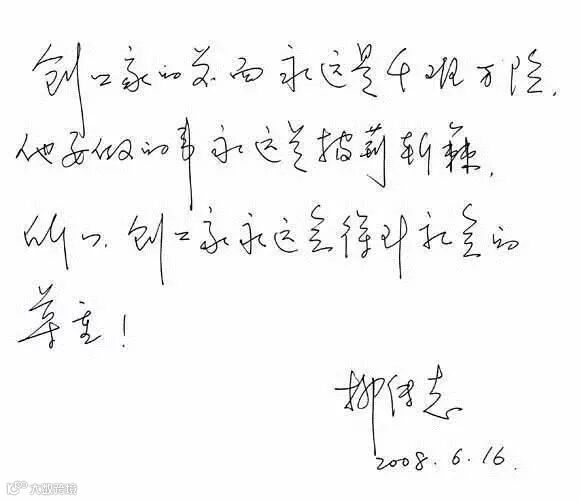 创业家的前面永远是千难万险，
他要做的事永远是披荆斩棘，
所以，创业家永远会得到社会的
尊重！
柳传志
2008.6.16.
大数跨境